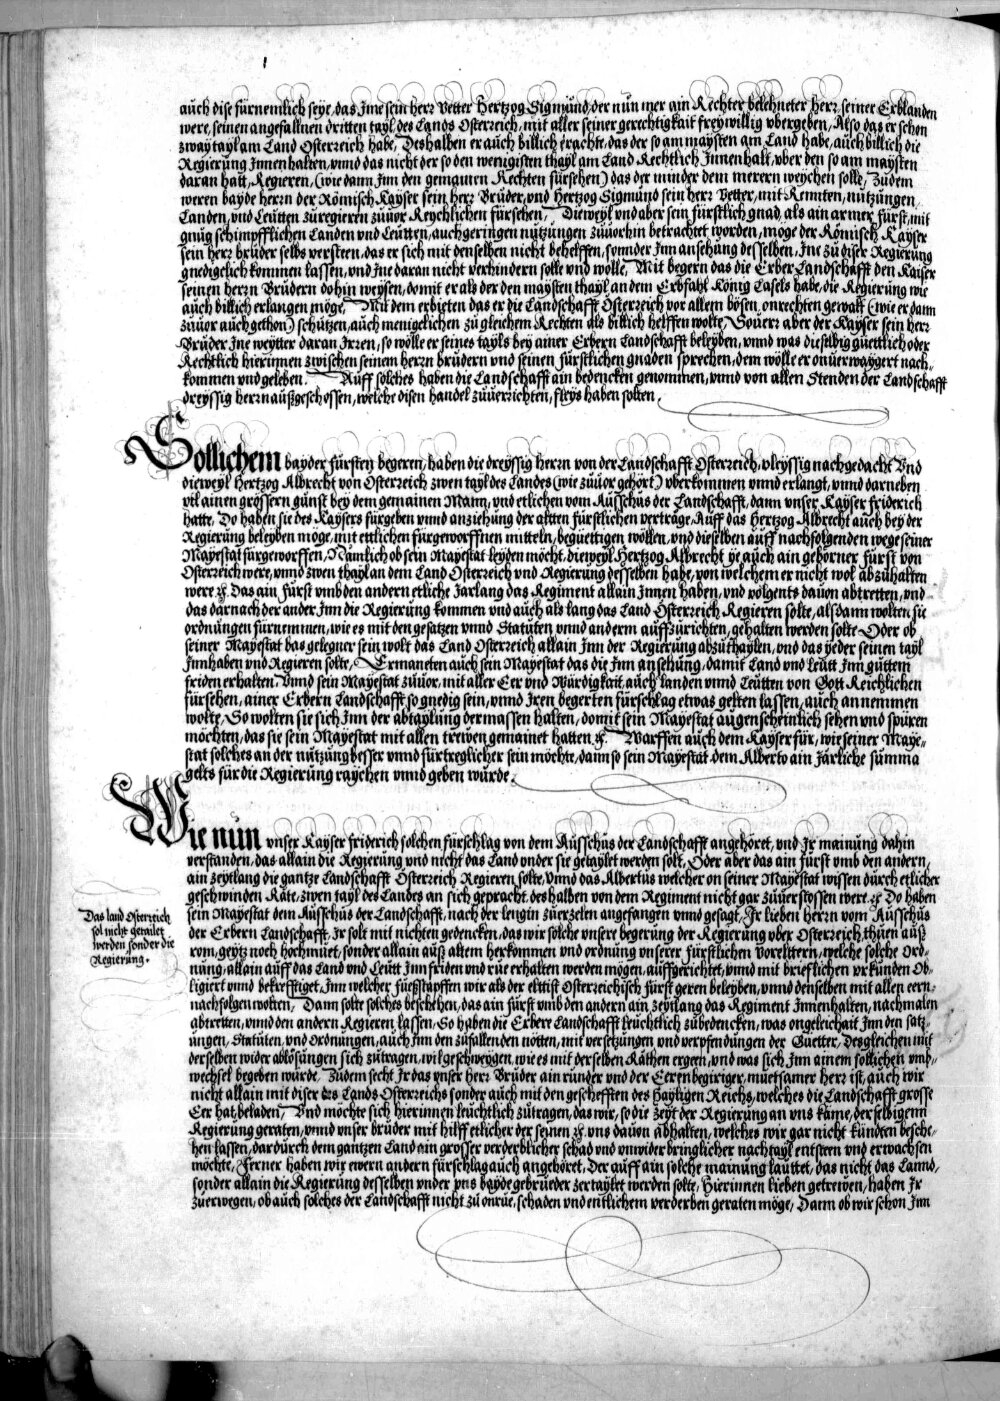 auch dise fürnemlich seye, das Jme sein herr Vetter Hertzog Sigmünd, der nün mer ain Rechter belehneter herr, seiner Erblanden
were, seinen angefallnen dritten tayl des Lands Osterreich, mit aller seiner gerechtigkait freywillig vbergeben, Also das er schon
zway tayl am Land Osterreich habe, Deshalben er auch billich erachte, das der so am maysten am Land habe, auch billich die
Regierüng Jnnenhalten, vnnd das nicht der so den wenigisten thayl am Land Rechtlich Jnnenhalt, vber den so am maysten
daran hatt, Regieren, (wie dann Jnn den gemainen Rechten fürsehen) das der minder dem merern weychen solle, Züdem
weren bayde herrn der Römisch Kayser sein herr Brüder, vnd Hertzog Sigmünd sein herr Vetter, mit Rennten, nützüngen,
Landen, vnd Leütten züregieren züuor Reychlichen fürsehen, Dieweyl vnd aber sein fürstlich gnad, als ain armer fürst, mit
gnüg schimpfflichen Landen vnd Leütten, auch geringen nützüngen züuorhin betrachtet worden, möge der Römisch Kayser
sein herr brüder selbs versteen, das er sich mit denselben nicht behelffen, sonnder Jnn ansehüng desselben, Jne zü diser Regierüng
gnediglich kommen lassen, vnd Jne daran nicht verhindern solle vnd wolle, Mit begern das die Erber Landschafft den Kaiser
seinen herrn Brüdern dohin weysen, domit er als der den maysten thayl an dem Erbfahl König Lasels habe, die Regierüng wie
auch billich erlangen möge, Mit dem erbieten das er die Landschafft Osterreich vor allem bösen, onrechten gewalt (wie er dann
züuor auch gethon) schützen, auch menigelichen zü gleichem Rechten als billich helffen wolte, Souerr aber der Kayser sein herr
Brüder Jne weytter daran Jrren, so wölle er seines tayls bey ainer Erbern Landschafft beleyben, vnnd was dieselbig güettlich oder
Rechtlich hierinnen zwischen seinem herrn brüdern vnd seinen fürstlichen gnaden sprechen, dem wölle er onuerwaygert nach-
kommen vnd geleben. Auff solches haben die Landschafft ain bedencken genommen, vnnd von allen Stenden der Landschafft
dreyssig herrn außgeschossen, welche disen handel züuerrichten, fleys haben solten.
Sollichem bayder fürsten begeren, haben die dreyssig herrn von der Landschafft Osterreich, vleyssig nachgedacht Vnd
dieweyl Hertzog Albrecht von Osterreich zwen tayl des Landes (wie züuor gehört) vberkommen vnnd erlangt, vnnd darneben
vil ainen grössern günst bey dem gemainen Mann, vnd etlichen vom Aüsschüs der Landschafft, dann vnser Kayser friderich
hatte, Do haben sie des Kaysers fürgeben vnnd anziehüng der altten fürstlichen verträge, Auff das Hertzog Albrecht auch bey der
Regierüng beleyben möge, mit ettlichen fürgeworffnen mitteln, begüettigen wöllen, vnd dieselben auff nachfolgenden wege seiner
Mayestat fürgeworffen, Nämlich ob sein Mayestat leyden möcht, dieweyl Hertzog Albrecht ye auch ain geborner fürst von
Osterreich were, vnnd zwen thayl an dem Land Osterreich vnd Regierüng desselben habe, von welchem er nicht wol abzühalten
were ꝛc. Das ain fürst vmb den andern etliche Jarlang das Regiment allain Jnnen haben, vnd volgents dauon abtretten, vnd
das darnach der ander Jnn die Regierüng kommen vnd auch als lang das Land Osterreich Regieren solte, alsdann wolten sie
ordnüngen fürnemmen, wie es mit den gesatzen vnnd Statüten vnnd anderm auffzürichten, gehalten werden solte Oder ob
seiner Mayestat bas gelegner sein wolt das Land Osterreich allain Jnn der Regierüng abzüthaylen, vnd das yeder seinen tayl
Jnnhaben vnd Regieren solte, Ermaneten auch sein Mayestat das die Jnn ansehüng, damit Land vnd Leütt Jnn güttem
friden erhalten, Vnnd sein Mayestat züuor, mit aller Eer vnd Würdigkait, auch landen vnnd Leütten von Gott Reichlichen
fürsehen, ainer Erbern Landschafft so gnedig sein, vnnd Jren begerten fürschlag etwas gelten lassen, auch annemmen
wolte, So wolten sie sich Jnn der abtaylüng dermassen halten, domit sein Mayestat augenscheinlich sehen vnd spüren
möchten, das sie sein Mayestat mit allen trewen gemainet hatten ꝛc. Warffen auch dem Kayser für, wie seiner Maye-
stat solches an der nützüng besser vnnd fürtreglicher sein möchte, dann so sein Mayestat dem Alberto ain Järliche sümma
gelts für die Regierüng raychen vnnd geben würde.
Wie nün vnser Kayser friderich solchen fürschlag von dem Aüsschüs der Landschafft angehöret, vnd Jr mainüng dahin
verstanden, das allain die Regierüng vnd nicht das Land vnder sie getaylet werden solt, Oder aber das ain fürst vmb den andern,
ain zeytlang die gantze Landschafft Osterreich Regieren solte, Vnnd das Albertüs welcher on seiner Mayestat wissen dürch etlicher
geschwinden Räte, zwen tayl des Landes an sich gepracht, deshalben von dem Regiment nicht gar züuerstossen were ꝛc. Do haben
sein Mayestat dem Aüsschüs der Landschafft, nach der lengin züerzelen angefangen vnnd gesagt, Jr lieben herrn vom Aüsschüs
der Erbern Landschafft, Jr solt mit nichten gedencken, das wir solche vnsere begerüng der Regierüng vber Osterreich, thüen auß
rom, geytz noch hochmüet, sonder allain auß altem herkommen vnd ordnüng vnserer fürstlichen vorelttern, welche solche Ord-
nüng, allain auff das Land vnd Leütt Jnn friden vnd rüe erhalten werden mögen, auffgerichtet, vnnd mit brieflichen vrkünden Ob-
ligiert vnnd bekrefftiget, Jnn welcher füeßstapffen wir als der elttist Osterreichisch fürst gern beleyben, vnnd denselben mit allen eern
nachfolgen wolten, Dann solte solches beschehen, das ain fürst vmb den andern ain zeytlang das Regiment Jnnenhalten, nachmalen
abtretten, vnnd den andern Regieren lassen, So haben die Erbere Landschafft leüchtlich zübedencken, was ongeleichait Jnn den satz-
üngen, Statüten, vnd Ordnüngen, auch Jnn den züfallenden nötten, mit versetzüngen vnd verpfendüngen der Güetter, Desgleichen mit
derselben wider ablösüngen sich zütragen, wil geschweygen, wie es mit derselben Räthen ergen, vnd was sich Jnn ainem sollichen vmb-
wechsel begeben würde, Züdem secht Jr das vnser herr Brüder ain ründer vnd der Eeren begiriger, müetsamer herr ist, auch wir
nicht allain mit diser des Lands Osterreichs sonder auch mit den geschefften des Hayligen Reichs, welches die Landschafft grosse
Eer hat, beladen, Vnd möchte sich hierinnen leüchtlich zütragen, das wir, so die zeyt der Regierüng an vns käme, der selbigenn
Regierüng geraten, vnnd vnser brüder mit hilff etlicher der seinen ꝛc. vns dauon abhalten, welches wir gar nicht kündten besche-
hen lassen, dardürch dem gantzen Land ain grosser verderblicher schad vnd vnwider bringlicher nachtayl entsteen vnd erwachsen
möchte, Ferner haben wir ewern andern fürschlag auch angehöret, Der auff ain solche mainüng laüttet, das nicht das Lannd,
sonder allain die Regierüng desselben vnder vns bayde gebrüeder zertaylet werden solte, Hierinnen lieben getrewen, haben Jr
züerwegen, ob auch solches der Landschafft nicht zü onrüe, schaden vnd entlichem verderben geraten möge, Dann ob wir schon Jnn
Das land Osterreich
sol nicht getailet
werden sonder die
Regierüng.